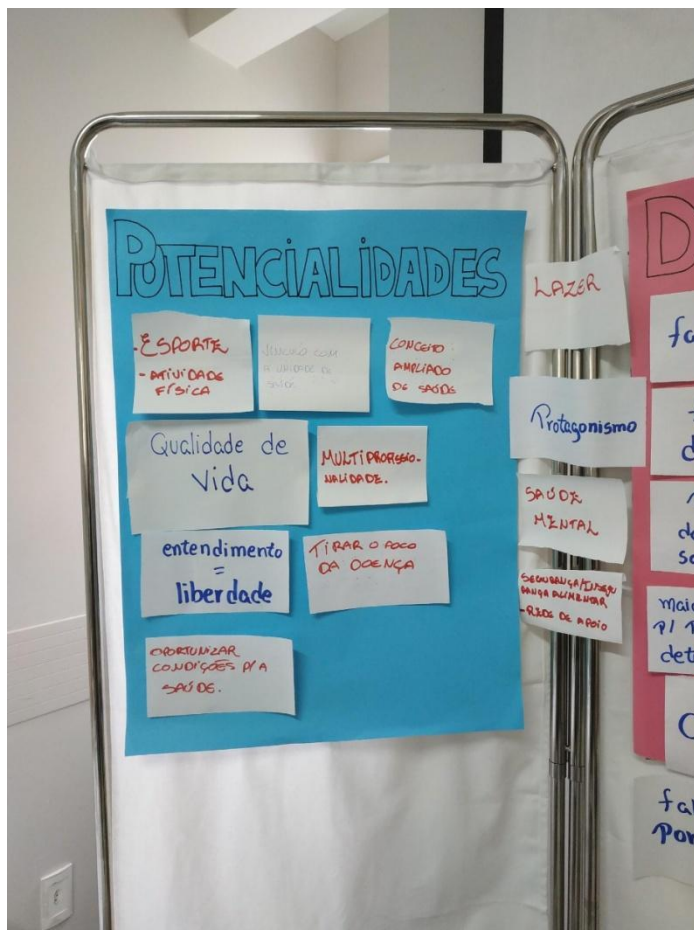 POTENCIALIDADES
- ESPORTE
- ATIVIDADE
FÍSICA
VÍNCULO COM
A UNIDADE DE
SAÚDE
CONCEITO
AMPLIADO
DE SAÚDE
Qualidade de
vida
MULTIPROFISSIO-
NALIDADE.
entendimento
=
liberdade
TIRAR O FOCO
DA DOENÇA
OPORTUNIZAR
CONDIÇÕES P/ A
SAÚDE.
LAZER
Protagonismo
SAÚDE
MENTAL
SEGURANÇA/INSEGU
RANÇA ALIMENTAR
- REDE DE APOIO
D
fa
d
de
so
maio
p/
det
C
fal
Por